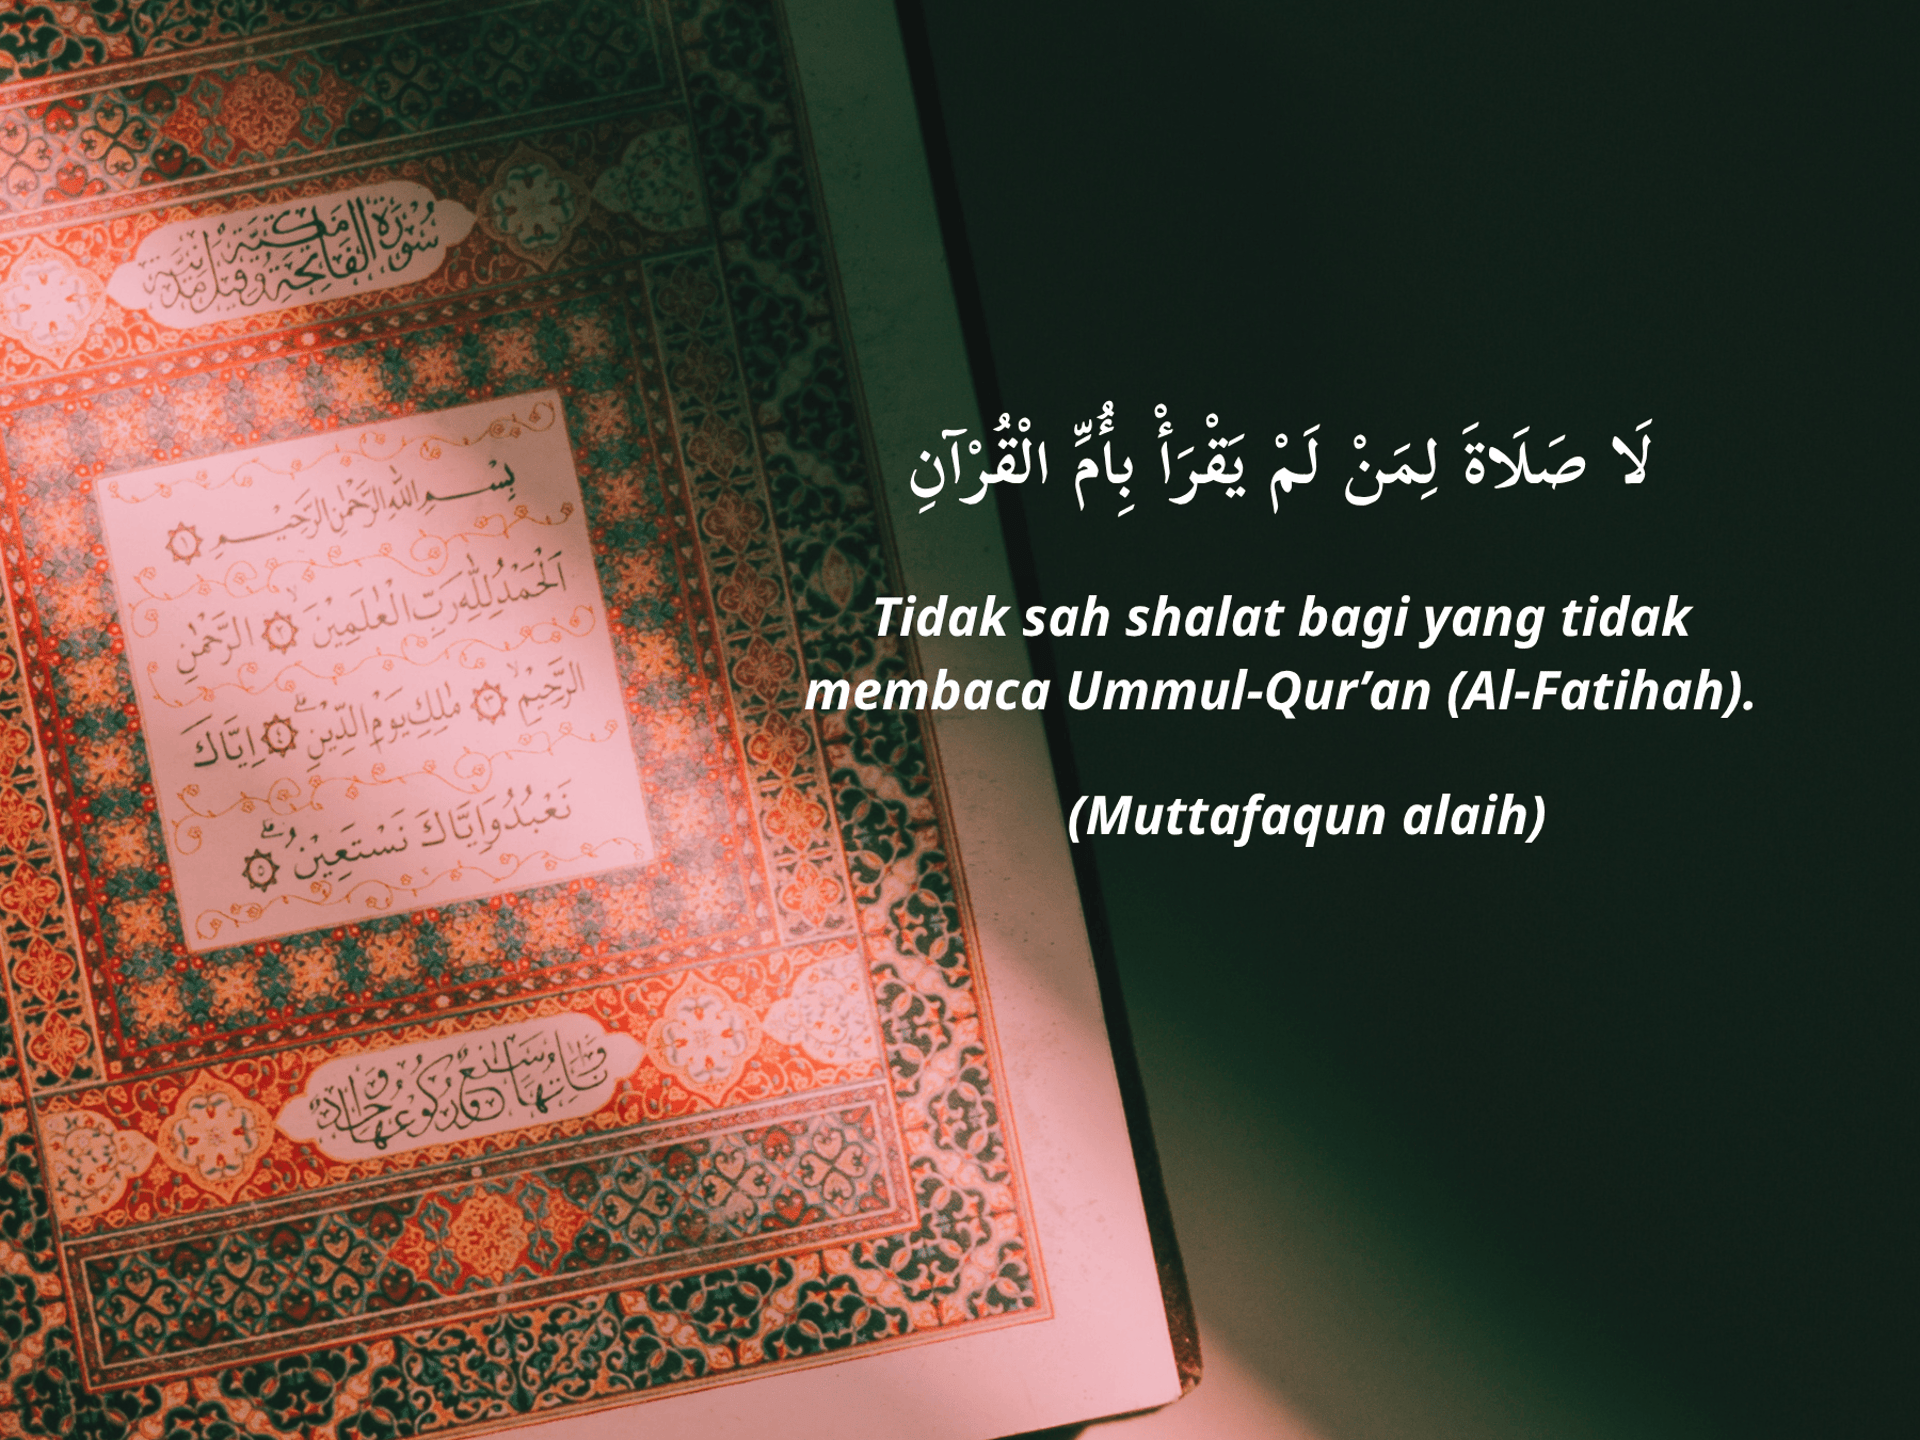 سُورَةُ الْفَاتِحَةِ مَكِّيَّة وَقِيلَ مَدَنِيَّة
بِسْمِ اللهِ الرَّحْمٰنِ الرَّحِيمِ ١
اَلْحَمْدُ لِلّٰهِ رَبِّ الْعٰلَمِينَ ٢ الرَّحْمٰنِ
الرَّحِيمِ ٣ مٰلِكِ يَوْمِ الدِّينِ ٤ اِيَّاكَ
نَعْبُدُ وَاِيَّاكَ نَسْتَعِينُ ٥
لَا صَلَاةَ لِمَنْ لَمْ يَقْرَأْ بِأُمِّ الْقُرْآنِ
Tidak sah shalat bagi yang tidak
membaca Ummul-Qur’an (Al-Fatihah).
(Muttafaqun alaih)